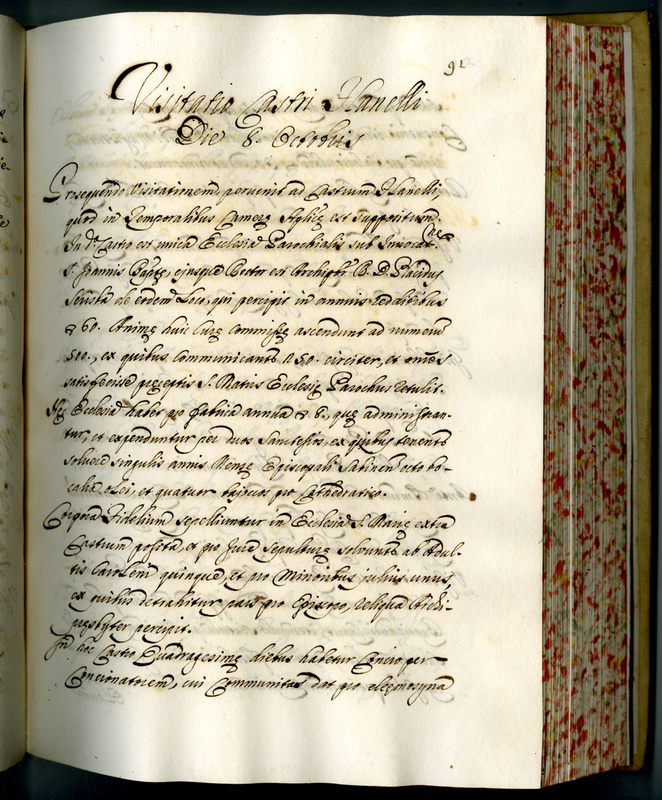 91
Visitatio Castri Nanelli
Die 8. Octobris
Prosequendo Visitationem pervenit ad Castrum Nanelli,
quod in Temporalibus Cameræ Aplicæ est suppositum.
In do Castro est unica Ecclesia Parochialis sub Invocatne
S. Joannis Baptæ, ejusque Rector est Archipr R. D. Placidus
de eodem Loco, qui percipit in annuis redditibus
60. Animæ huic Curæ Commissæ ascendunt ad numerum
500., ex quibus Communicantr 250. circiter, et omnes
satisfecisse præceptis S. Matris Ecclesiæ Parochus retulit.
Hæc Ecclesia habet pro fabrica annua 8., quæ administran-
tur, et expenduntur per duos Santesios, ex quibus tenentr
solvere singulis annis Mensæ Episcopali Sabinen octo bo-
calia olei, et quatuor bajocos pro Cathedratico.
Corpora Fidelium sepelliuntur in Ecclesia S. Mariæ extra
Castrum posita, et pro Jure sepulturæ solvuntr ab Adul-
tis Caroleni quinque, et pro Minoribus julius unus,
ex quibus detrahitur pars pro Episcopo, reliqua Archi-
præsbyter percipit.
In hoc Castro Quadragesimæ diebus habetur Concio per
Concionatorem, cui Communitas dat pro eleemosyna